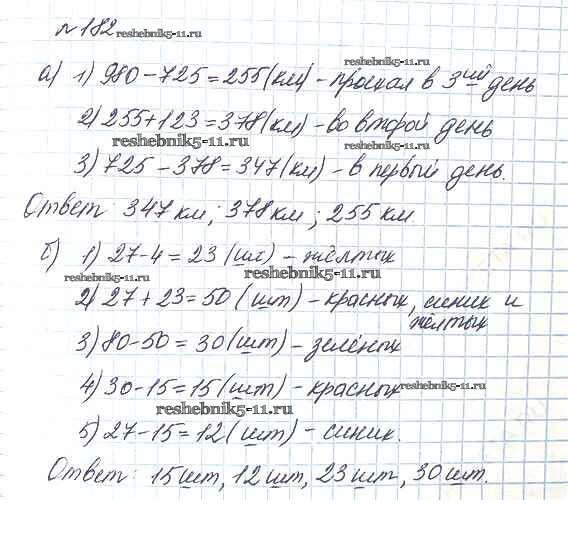 № 182 reshebnik5-11.ru
reshebnik5-11.ru
а) 1) 980 - 725 = 255 (км) - проехал в 3ий день
2) 255 + 123 = 378 (км) - во второй день
reshebnik5-11.ru
reshebnik5-11.ru
3) 725 - 378 = 347 (км) - в первый день.
Ответ: 347 км; 378 км; 255 км.
б) 1) 27 - 4 = 23 (шт) - жёлтых
reshebnik5-11.ru
reshebnik5-11.ru
2) 27 + 23 = 50 (шт) - красных, синих и
жёлтых
3) 80 - 50 = 30 (шт) - зелёных
4) 30 - 15 = 15 (шт) - красных reshebnik5-11.ru
reshebnik5-11.ru
5) 27 - 15 = 12 (шт) - синих.
Ответ: 15 шт, 12 шт, 23 шт, 30 шт.